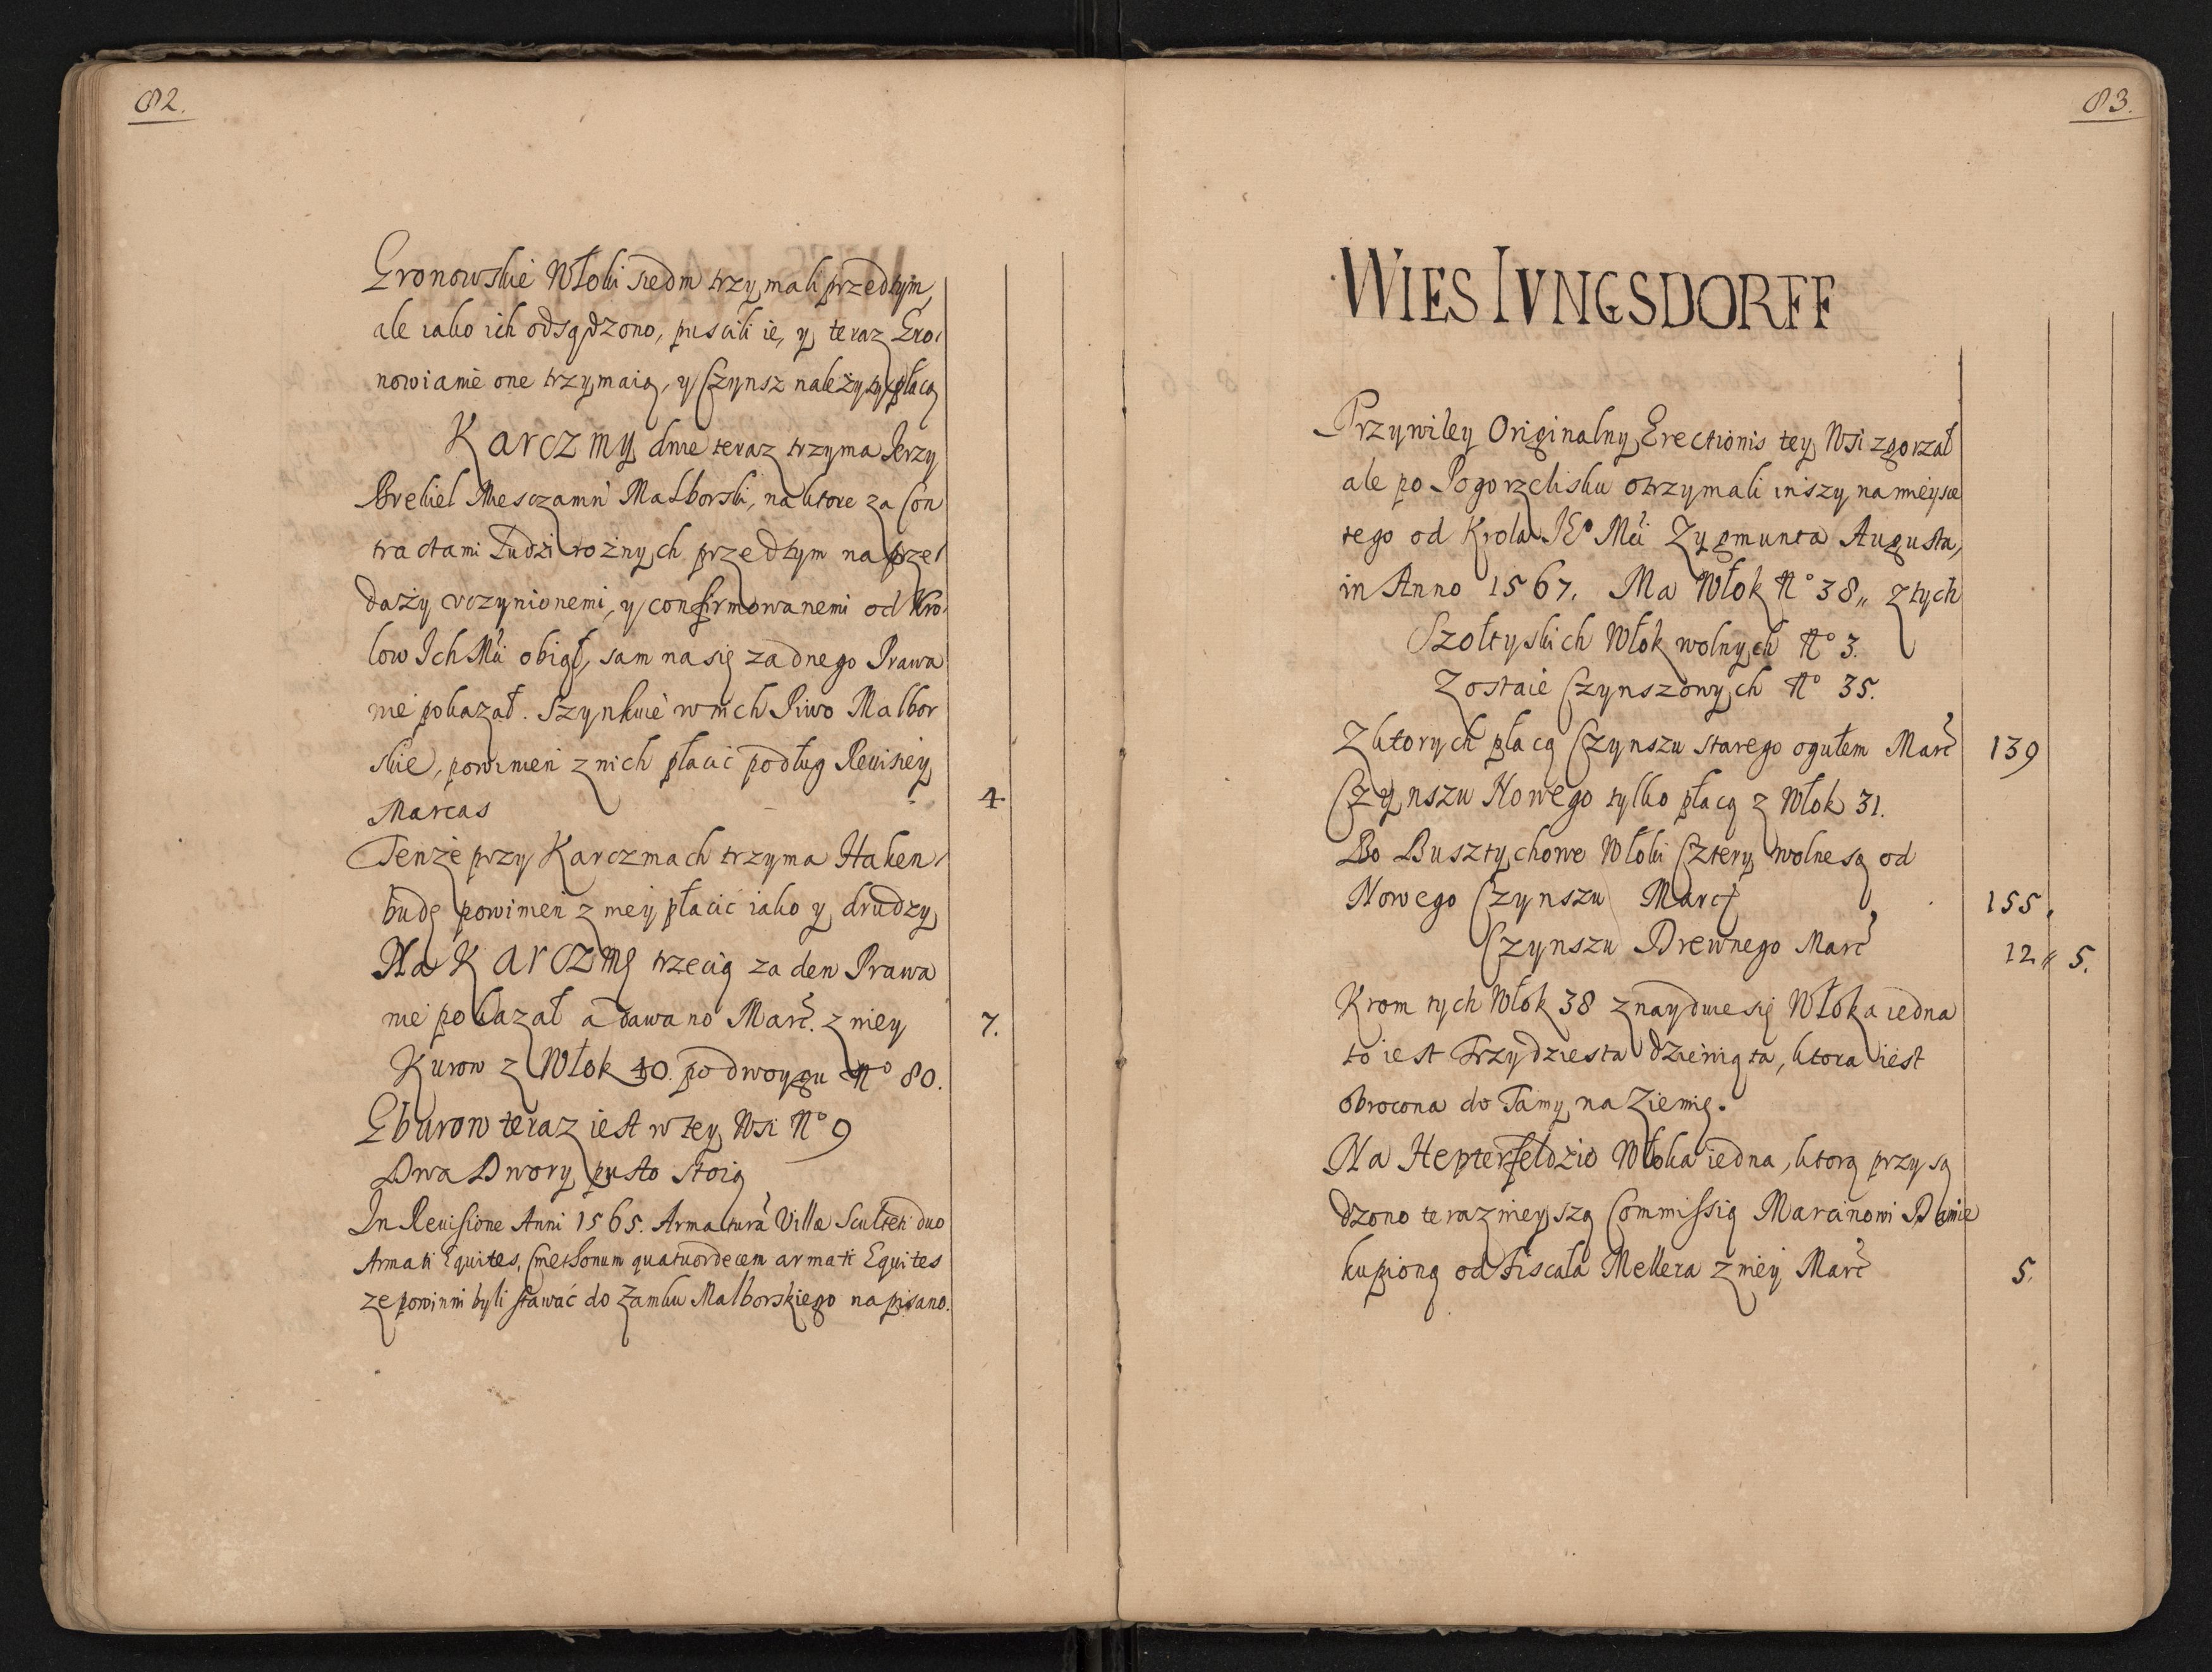 82.
Gronowskie Włoki siedm trzymali przedtym,
ale iako ich odsądzono, puscili ie, y teraz Gro,
nowianie one trzymaią, y Czynsz należyty płacą
Karczmy dwie teraz trzyma Jerzy
Brekiel Miesczanin Malborski, na ktore za Con
tractami Ludzi rożnych przedtym na prze,
daży vczynionemi, y confirmowanemi od Kro,
low Ich Mci obiął, sam na się zadnego Prawa
nie pokazał. Szynkuie w nich Piwo Malbor
skie, powinien z nich płacić podług Reuisiey
Marcas 4.
Tenże przy Karczmach trzyma Haken,
budę powinien z niey płacić iako y drudzy,
Na Karczmę trzecią zaden Prawa
nie pokazał a dawano Marc. z niey 7.
Kurow z Włok 40. po dwoygu No 80.
Gburow teraz iest w tey Wsi No 9
Dwa Dwory pusto stoią
In Reuisione Anni 1565. Armatura Villæ Sculteti duo
Armati Equites, Cmethonum quatuordecem armati Equites
ze powinni byli stawać do Zamku Malborskiego napisano.
83.
WIES IVNGSDORFF
Przywiley Originalny Erectionis tey Wsi zgorzał
ale po Pogorzelisku otrzymali inszy na mieysce
tego od Krola JEo Mci Zygmunta Augusta,
in Anno 1567. Ma Włok No 38,, z tych
Szołtyskich Włok wolnych No 3.
Zostaie Czynszowych No 35.
Z ktorych płacą Czynszu starego ogułem Marc 139
Czynszu Nowego tylko płacą z Włok 31.
Bo Busztychowe Włoki Cztery wolne są od
Nowego Czynszu Marc 155.
Czynszu Drewnego Marc 12 ,, 5.
Krom tych Włok 38 znayduie się Włoka iedna
to iest Trzydziesta dziewiąta, ktora iest
obrocona do Tamy na Ziemię.
Na Hepterfeldzie Włoka iedna, ktorą przysą
dzono teraznieyszą Commissią Marcinowi
kupioną od Fiscala Mellera z niey Marc 5.